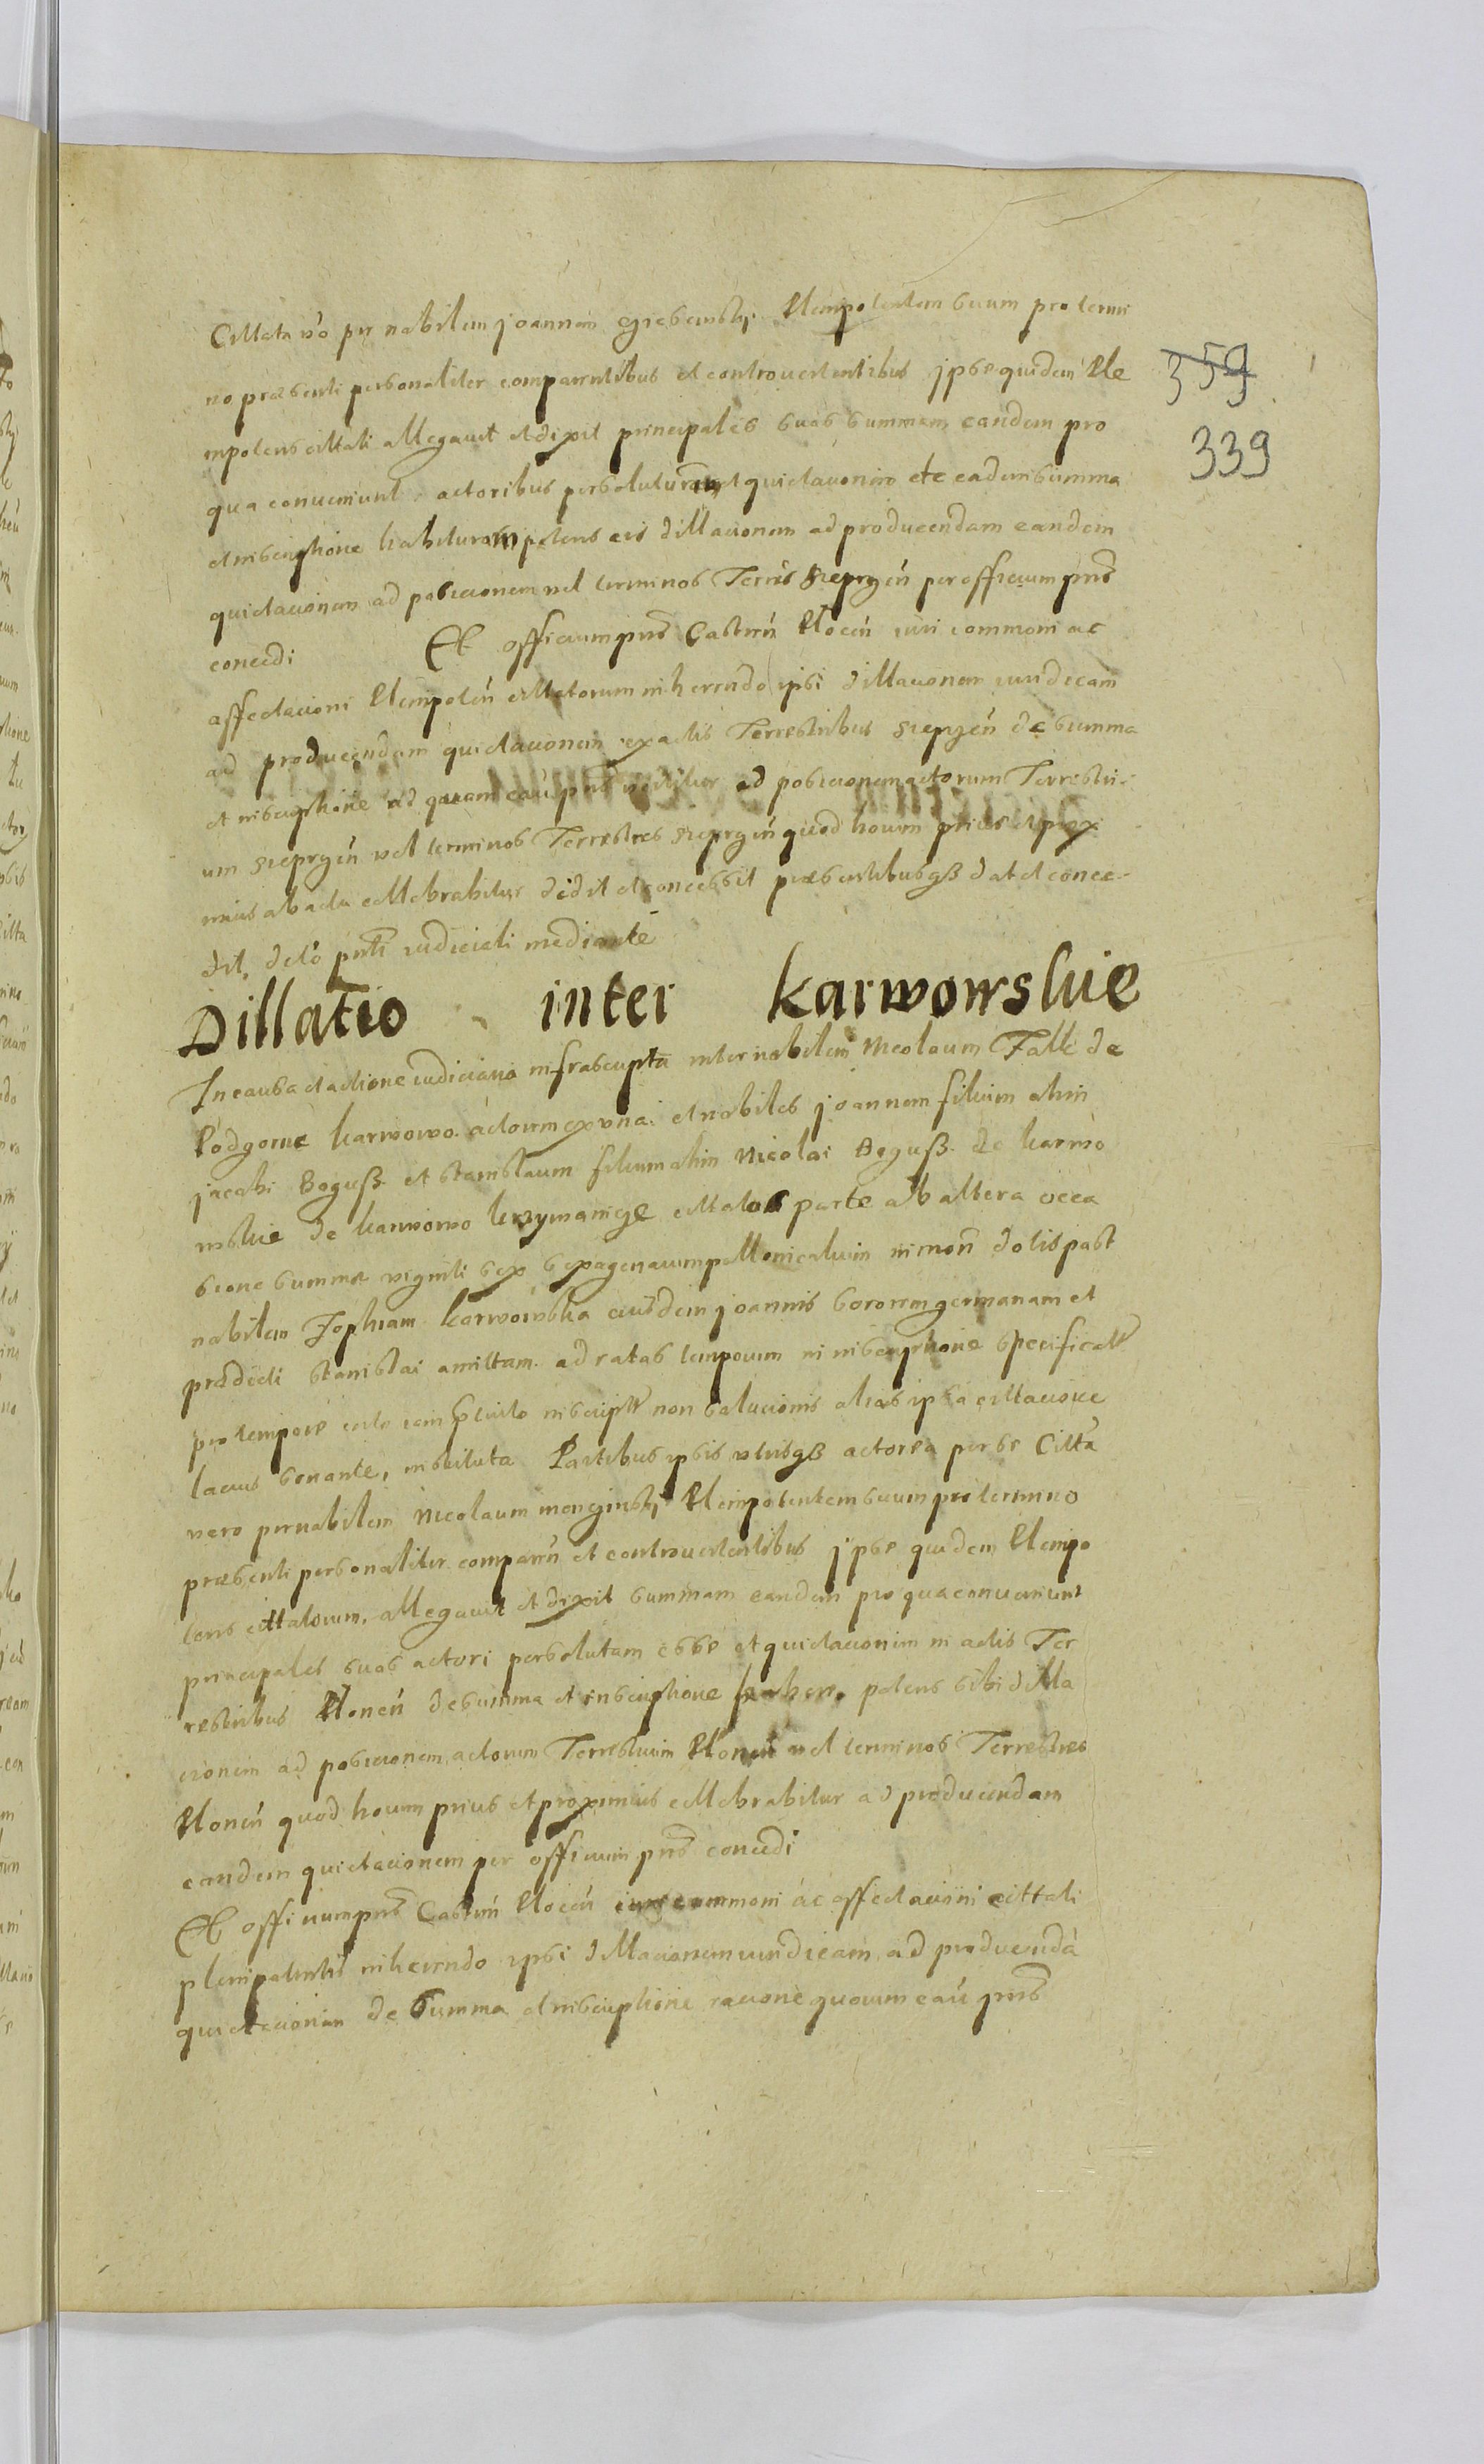 Cittata vo per nobilem joannem Plenipotentem suum pro termi
no præsenti personaliter comparentibus et controuertentibus jpse quidem Ple
359
nipotens cittati allegauit et dixit principales suos summam eandem pro
339
qua conueniunt actoribus persoluturam et quietacionem de eadem summa
et inscriptione habituros petens eis dillacionem ad producendam eandem
quietacionem ad posicionem vel terminos Terrës per officium pns
concedi Et officium pns Castrēn Plocēn iuri commoni ac
affectacioni Plenipotēn cittatorum inherendo ipsi dillacionem iuridicam
ad producendam quietacionem ex actis Terrestribus de summa
et inscriptione ad quam cau pns vertitur ad posicionem actorum Terrestri
um vel terminos Terrestres quod horum prius et prox
imius ab actu cellebrabitur dedit et concessit præsentibusqß dat et conce
dit, decto pnti iudiciali mediante
Dillatio inter karwowskie
In causa et actione iudiciaria infrascripta inter nobilem Nicolaum Falk de
Podgorne karwowo actorem ex vna et nobiles joannem filium olim
jacobi Boguß et stanislaum filium olim Nicolai Boguß de karwo
wskie de karwowo krzywanice cittatos parte ab altera occa
sione summæ viginti sex sexagenarum pollonicalium in mon dotis post
nobilem Zophiam karwowska eiusdem joannis sororem germanam et
prædicti stanislai amittam ad ratas temporum in inscriptione specificatr
pro tempore certo iam inscriptr non solucionis alias ipsa cittacione
lacius sonante, instituta Partibus ipsis vtrisqß actorea per se Citta
vero per nobilem Nicolaum Plenipotentem suum pro termino
præsenti personaliter comparēn et controuertentibus jpse quidem Plenipo
tens cittatorum, allegauit et dixit summam eandem pro qua conueniunt
principales suos actori persolutam esse et quietacionem in actis Ter
restribus Plonēn de summa et inscriptione habere petens sibi dilla
cionem ad posicionem actorum Terrestrium Plonēn vel terminos Terrestres
Plonēn quod horum prius et proximius cellebrabitur ad producendam
eandem quietacionem per officium pns concedi
Et officium pns Castrēn Plocēn iuri commoni ac affectacioni cittati
plenipotentis inherendo ipsi dillacionem iuridicam ad producendā
quietacionem de summa et inscriptione racione quorum cau pns